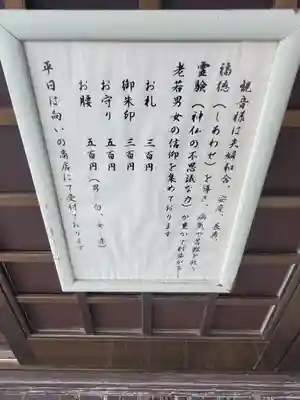 観音様は夫婦和合、安産、長寿、
福徳(しあわせ)を導き、病気や苦難を救う
霊験(神仏の不思議な力)が豊かで
老若男女の信仰を集めております
お札 三百円
御朱印 三百円
お守り 五百円
お腰 五百円(男 白、女 赤)
平日は向いの商店にて受付ております